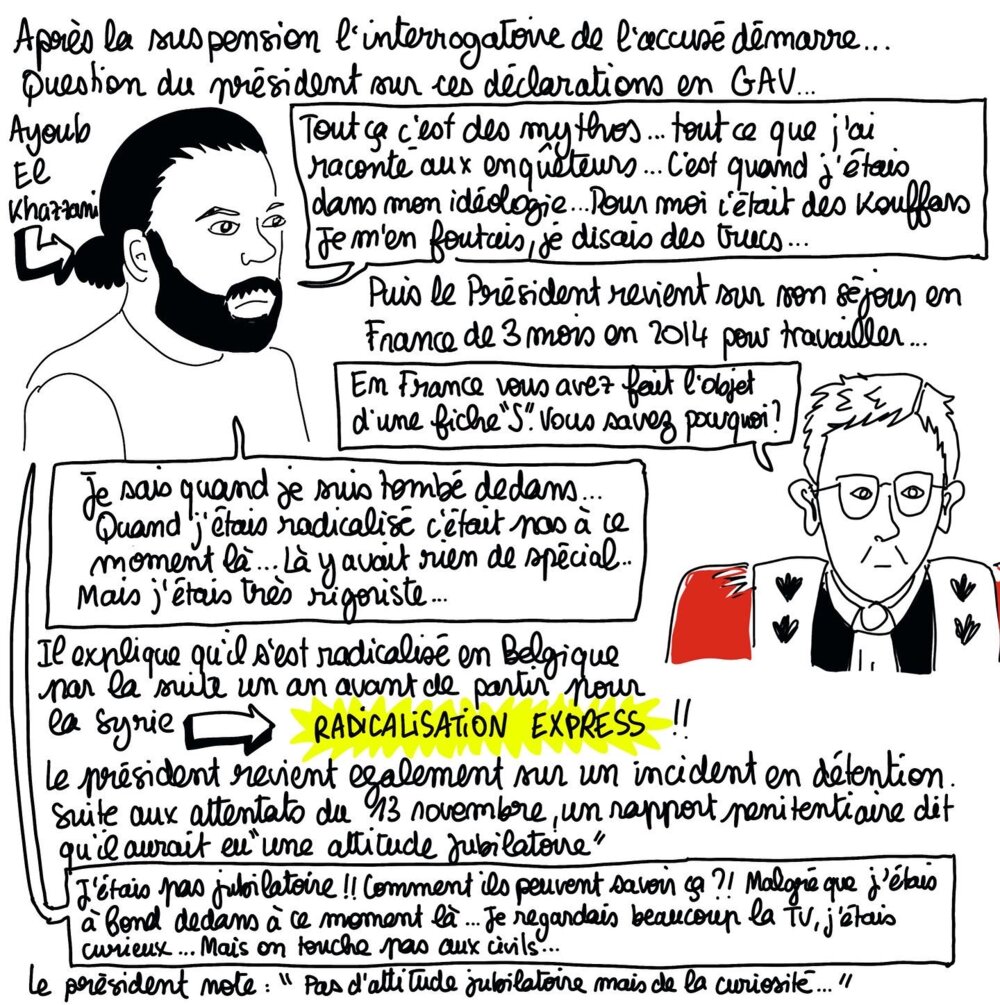 Après la suspension l'interrogatoire de l'accusé démarre...
Question du président sur ces déclarations en GAV...
Ayoub
El
Khazzani
Tout ça c'est des mythos... tout ce que j'ai
raconté aux enquêteurs... C'est quand j'étais
dans mon idéologie... Pour moi c'était des Kouffars
Je m'en foutais, je disais des trucs...
Puis le Président revient sur son séjour en
France de 3 mois en 2014 pour travailler...
En France vous avez fait l'objet
d'une fiche "S". Vous savez pourquoi?
Je sais quand je suis tombé dedans...
Quand j'étais radicalisé c'était pas à ce
moment là... Là y avait rien de spécial..
Mais j'étais très rigoriste...
Il explique qu'il s'est radicalisé en Belgique
par la suite un an avant de partir pour
la Syrie
RADICALISATION EXPRESS !!
Le président revient egalement sur un incident en détention.
Suite aux attentats du 13 novembre, un rapport penitentiaire dit
qu'il aurait eu "une attitude jubilatoire"
J'étais pas jubilatoire !! Comment ils peuvent savoir ça ?! Malgré que j'étais
à fond dedans à ce moment là... Je regardais beaucoup la TV, j'étais
curieux... Mais on touche pas aux civils...
Le président note : " Pas d'attitude jubilatoire mais de la curiosité..."